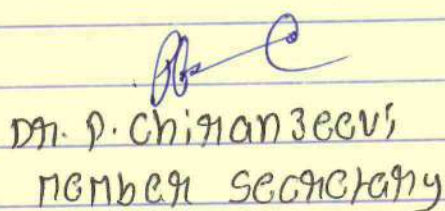 Dr. P. Chiranzeevi
member secretary